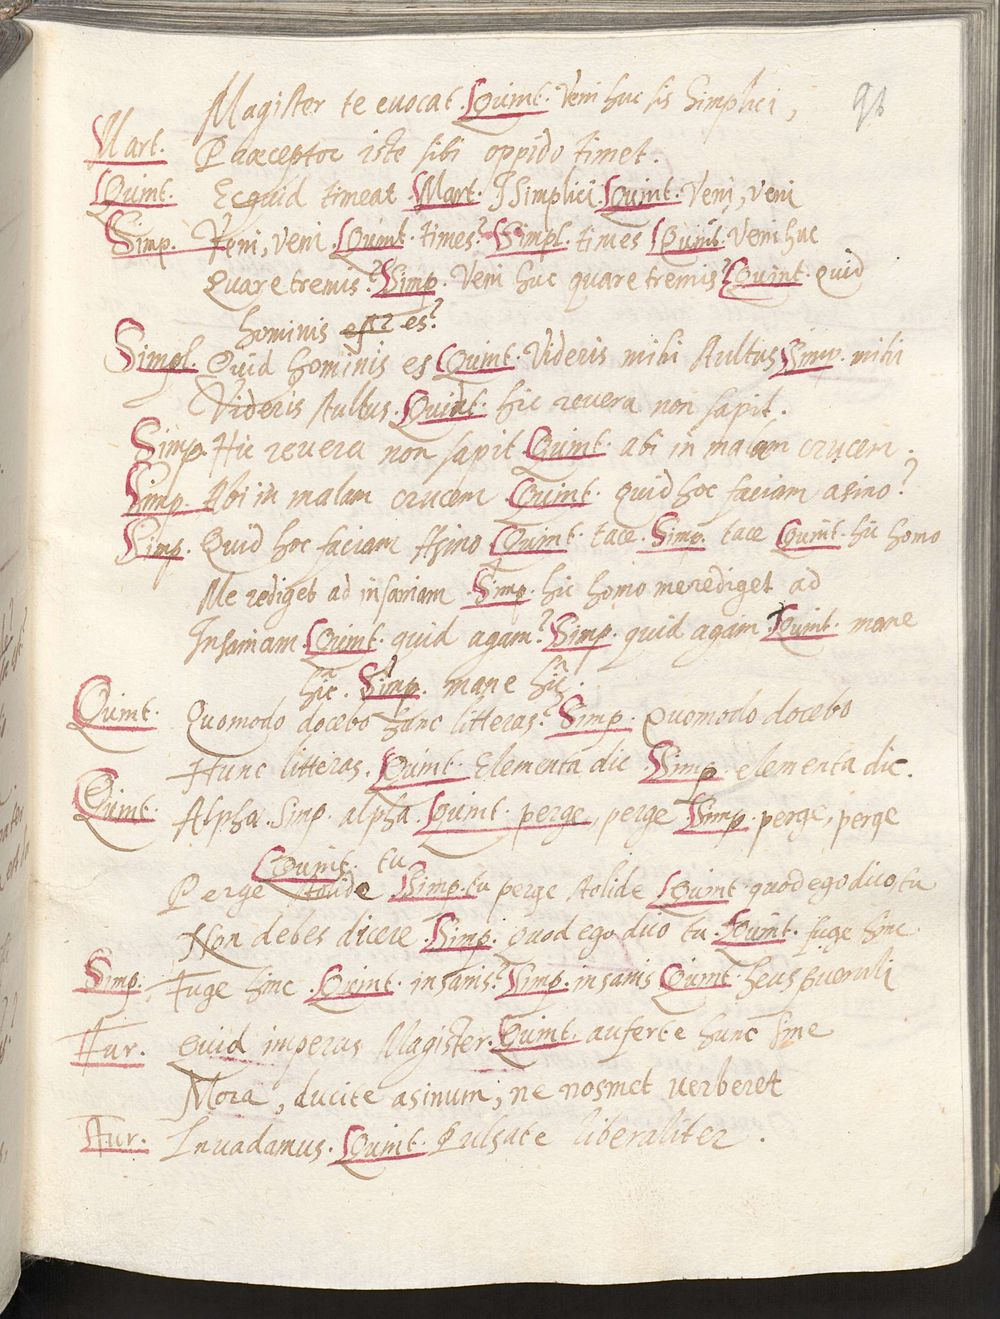 91
Magister te evocat. Quint. Veni huc sis Simplici,
Mart. Praeceptor iste sibi oppido timet.
Quint. Ecquid timeat Mart. I Simplici. Quint. Veni, veni
Simp. Veni, veni. Quint. times? Simpl. times Quint. Veni huc
Quare tremis? Simp. Veni huc quare tremis? Quint. quid
hominis est? es?
Simpl. Quid hominis es Quint. Videris mihi stultus Simp. mihi
Videris stultus. Quint. hic revera non sapit.
Simp. Hic revera non sapit Quint. abi in malam crucem.
Simp. Abi in malam crucem Quint. quid hoc faciam asino?
Simp. Quid hoc faciam Asino Quint. tace. Simp. tace Quint. hic homo
Me rediget ad insaniam Simp. hic homo me rediget ad
Insaniam Quint. quid agam? Simp. quid agam Quint. mane
hic. Simp. mane hic.
Quint. Quomodo docebo hunc litteras? Simp. Quomodo docebo
Hunc litteras. Quint. Elementa dic Simp elementa dic.
Quint. Alpha. Simp. alpha. Quint. perge, perge Simp. perge, perge
Quint. tu
Perge stolide Simp. tu perge stolide Quint. quod ego dico, tu
Non debes dicere. Simp. Quod ego dico tu. Quint. fuge hinc
Simp. Fuge hinc. Quint. insanis? Simp. insanis Quint heus pueruli
Fur. Quid imperas Magister. Quint. auferte hunc sine
Mora, ducite asinum; ne nosmet verberet
Aur. Invadamus. Quint. Pulsate liberaliter.